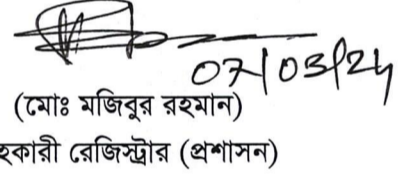 07/03/24
(মোঃ মজিবুর রহমান)
হকারী রেজিস্ট্রার (প্রশাসন)